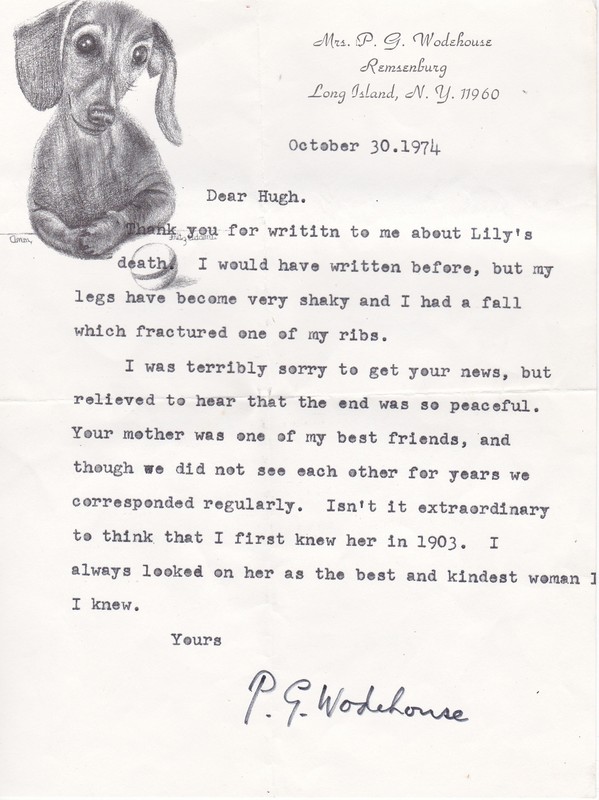 Mrs. P. G. Wodehouse
Remsenburg
Long Island, N. Y. 11960
October 30.1974
Dear Hugh.
Thank you for writitn to me about Lily's
death. I would have written before, but my
legs have become very shaky and I had a fall
which fractured one of my ribs.
I was terribly sorry to get your news, but
relieved to hear that the end was so peaceful.
Your mother was one of my best friends, and
though we did not see each other for years we
corresponded regularly. Isn't it extraordinary
to think that I first knew her in 1903. I
always looked on her as the best and kindest woman I
I knew.
Yours
P. G. Wodehouse